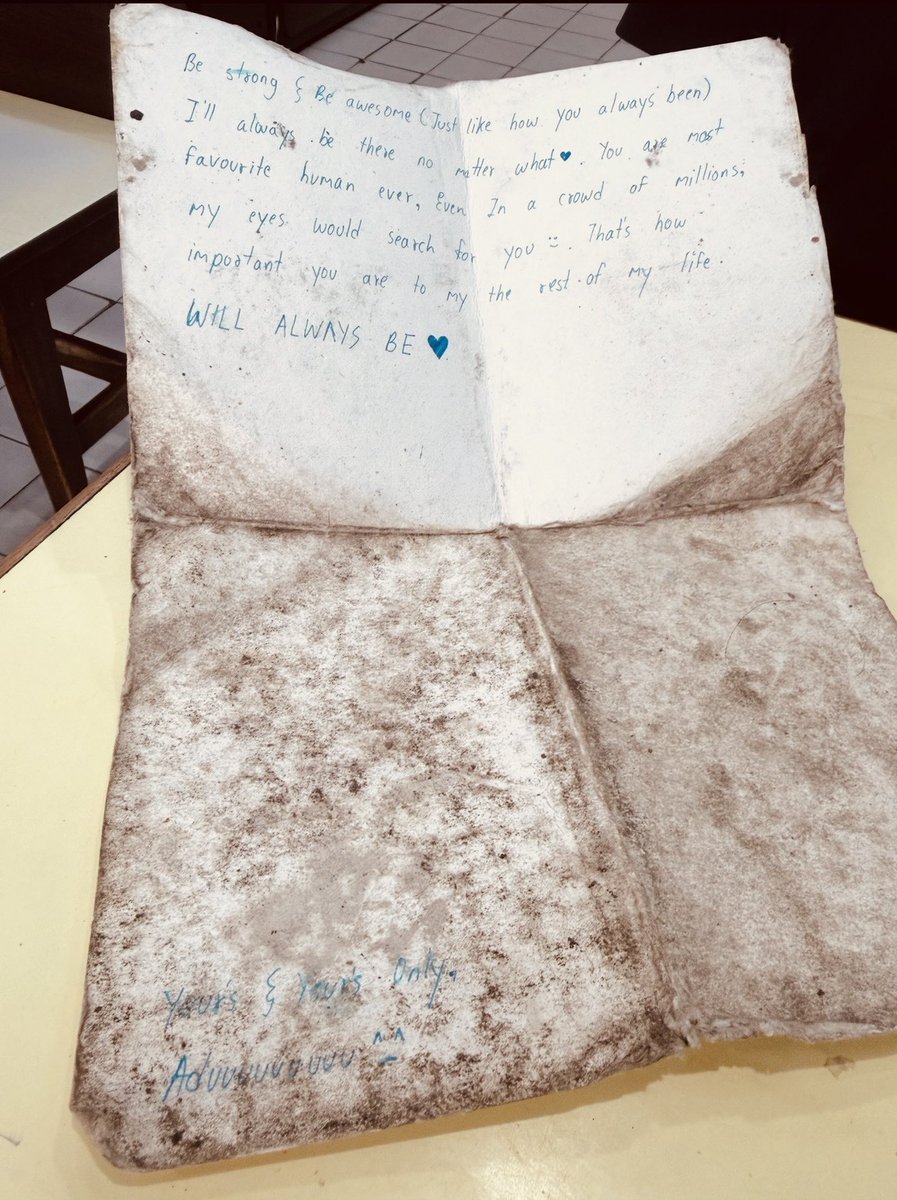 Be strong & Be awesome (Just like how you always been)
I'll always be there no matter what ♥. You are most
favourite human ever, Even In a crowd of millions,
my eyes would search for you :). That's how
important you are to my the rest of my life.
WILL ALWAYS BE ♥
Your's & Your's Only,
Aduuuuuuuuu ^_^